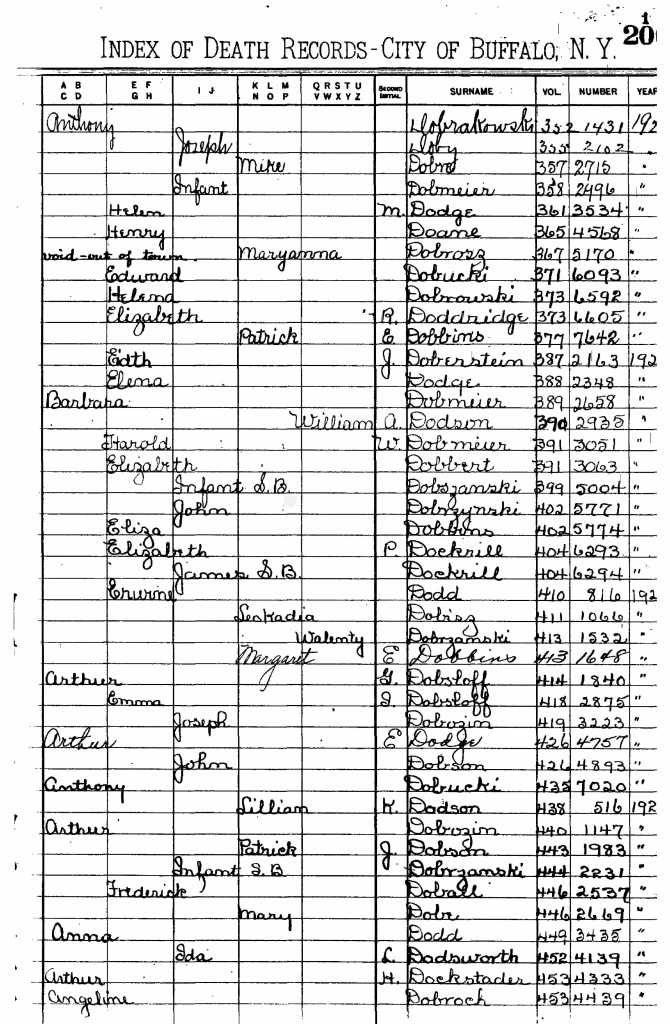 1
20
INDEX OF DEATH RECORDS-CITY OF BUFFALO, N. Y.
A B C D E F G H I J K L M N O P Q R S T U V W X Y Z SECOND INITIAL SURNAME VOL. NUMBER YEAR
Anthony Dobrakowski 352 1431 192
Joseph Doby 355 2102 "
Mike 357 2715 "
Infant Dobmeier 358 2496 "
Helen M. Dodge 361 3534 "
Henry Doane 365 4568 "
void-out of town. Maryanna Dobrosz 367 5170 "
Edward Dobucki 371 6093 "
Helena Dobrowski 373 6592 "
Elizabeth R. Doddridge 373 6605 "
Patrick E Dobbins 377 7642 "
Edth J. Doberstein 387 2163 192
Elena Dodge 388 2348 "
Barbara Dobmeier 389 2658 "
William A. Dodson 390 2935 "
Harold W. Dobmeier 391 3051 "
Elizabeth Dobbert 391 3063 "
Infant S.B. Dobszanski 399 5004 "
John Dobrzynski 402 5771 "
Eliza Dobbins 402 5774 "
Elizabeth P. Dockrill 404 6293 "
James S.B. Dockrill 404 6294 "
Dodd 410 816 192
Leokadia Dobisz 411 1066 "
Walenty Dobrzanski 413 1532 "
Margaret E Dobbins 413 1648 "
Arthur G. Dobsloff 414 1840 "
Emma I. Dobsloff 418 2875 "
Joseph Dobozin 419 3223 "
Arthur E Dodge 426 4757 "
John Dobson 426 4893 "
Anthony Dobucki 435 7020 "
Lillian K. Dodson 438 516 192
Arthur Dobozin 440 1147 "
Patrick J. Dobson 443 1983 "
Infant S.B. Dobrzanski 444 2231 "
Frederick Doball 446 2537 "
Mary Dobr 446 2669 "
Anna Dodd 449 3435 "
Ida L. Dodsworth 452 4139 "
Arthur H. Dockstader 453 4333 "
Angeline Dobroch 453 4439 "